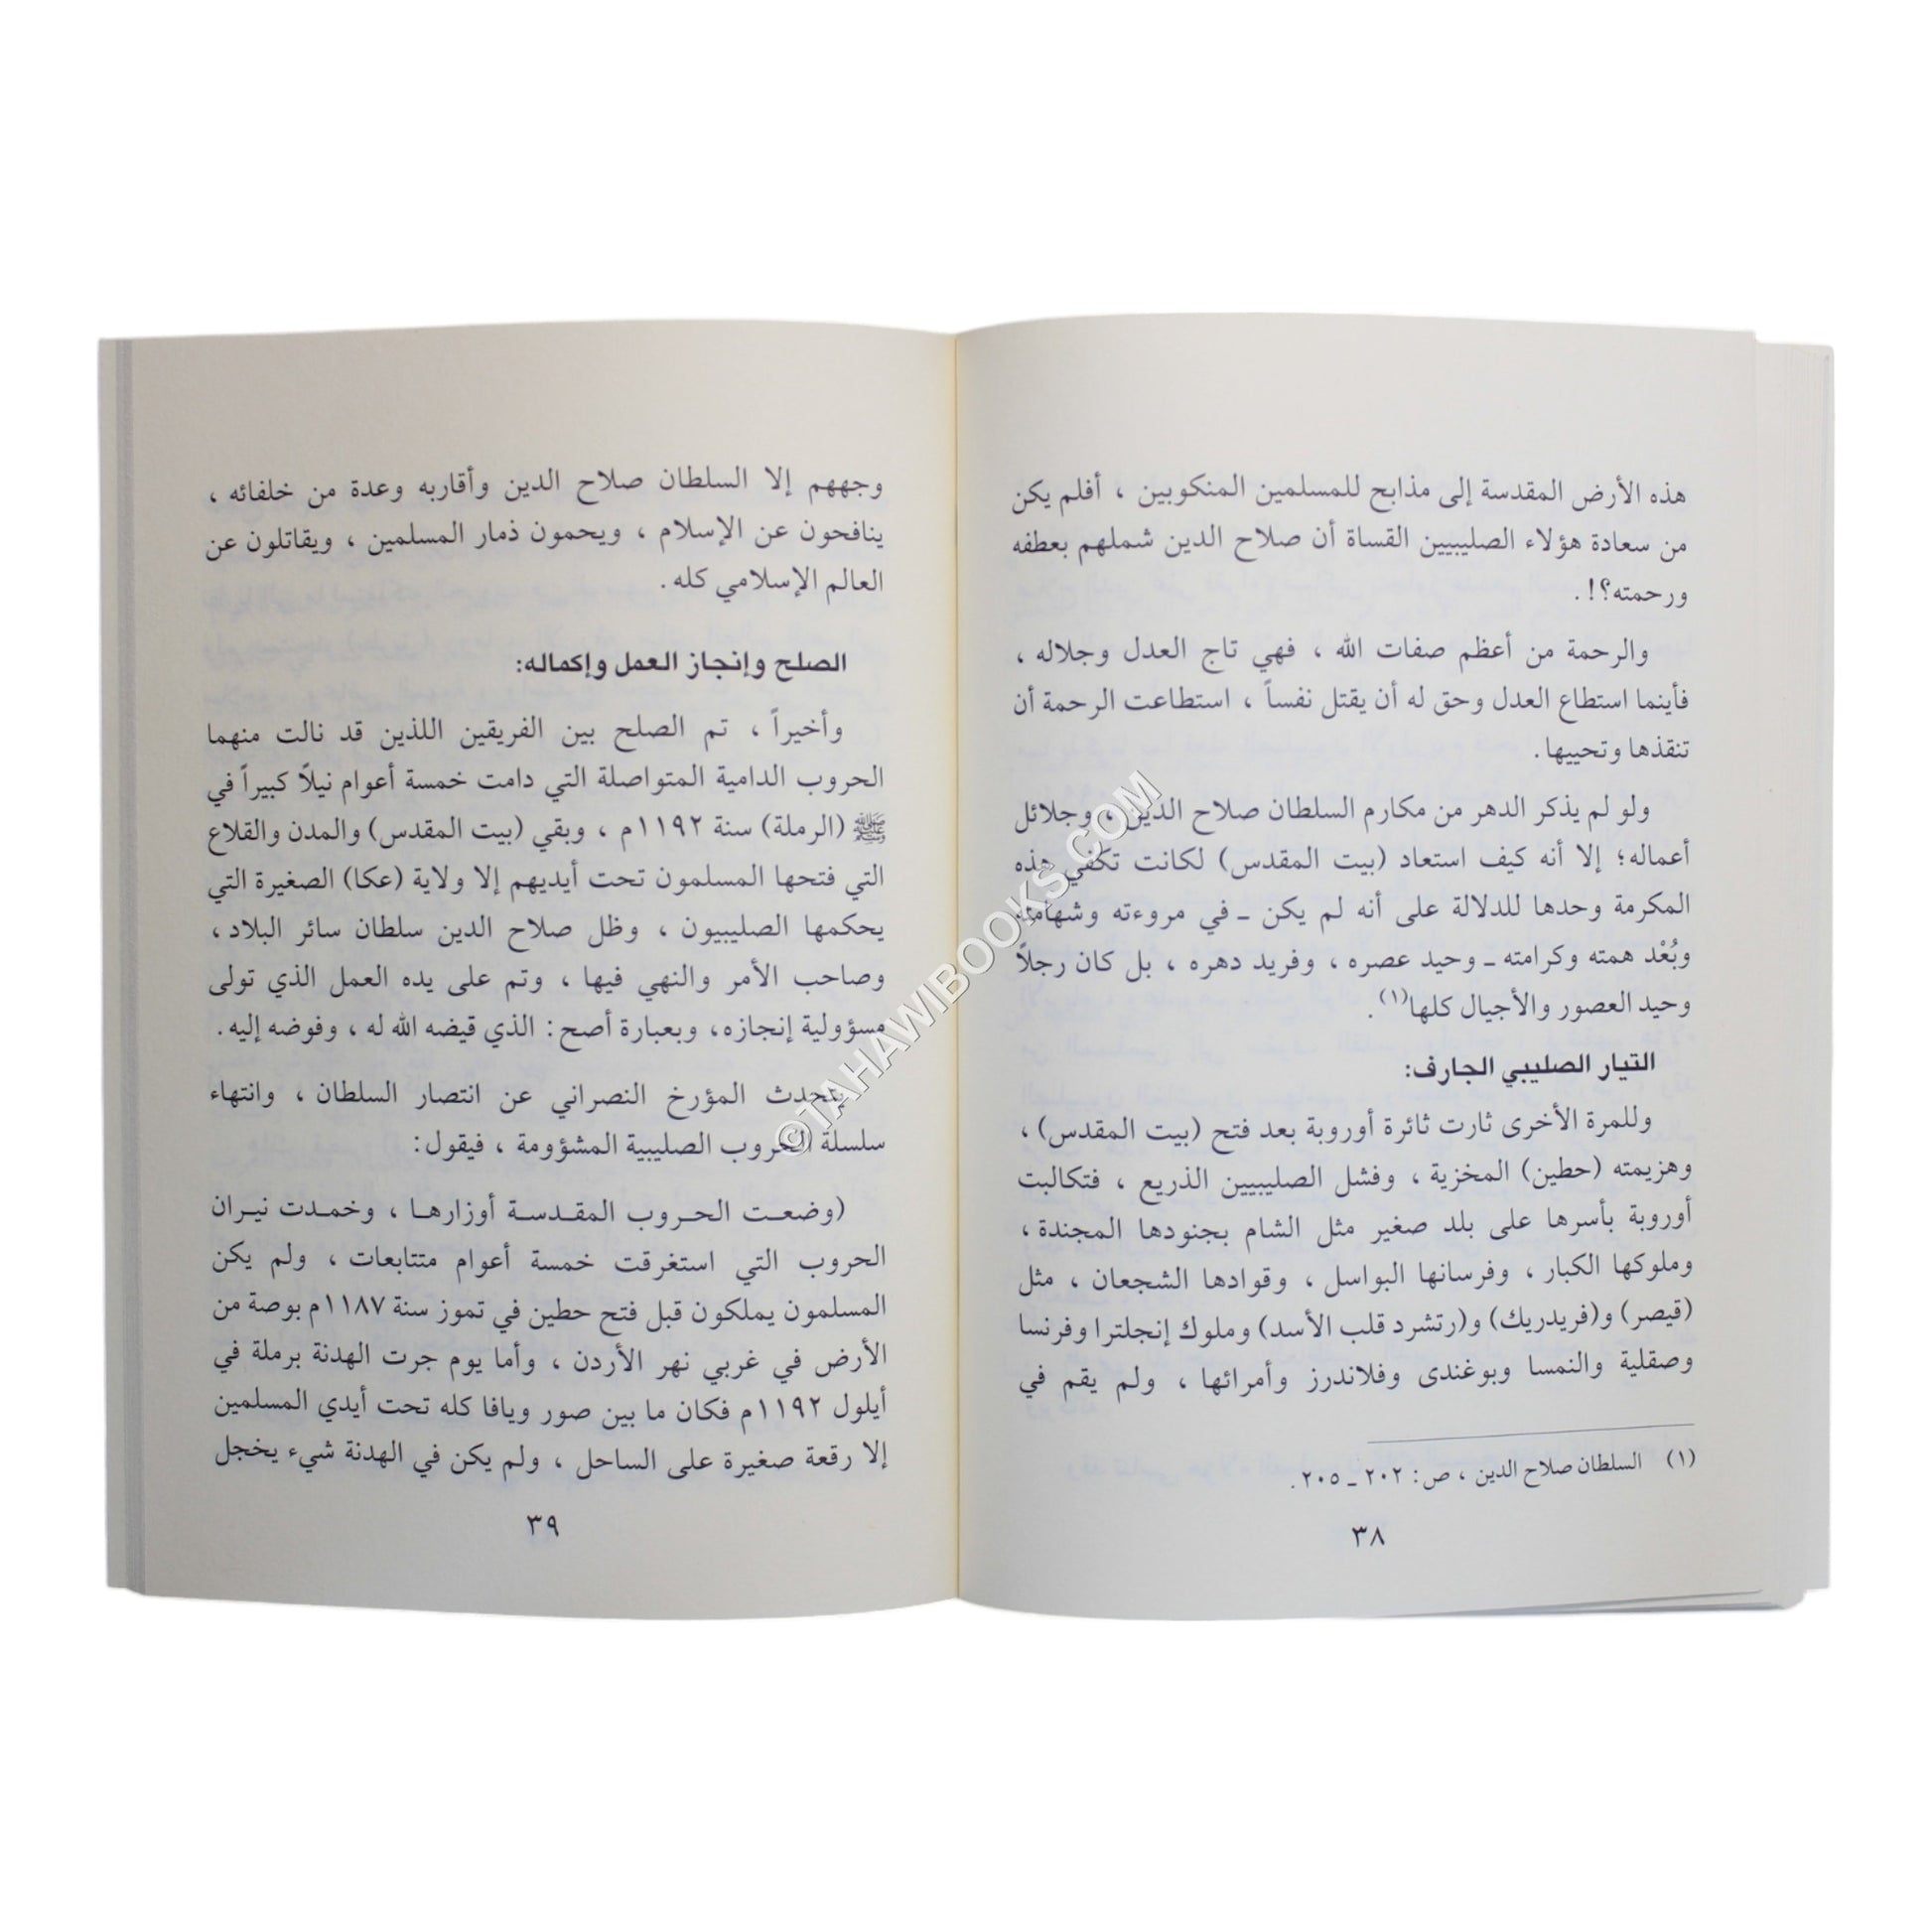 هذه الأرض المقدسة إلى مذابح للمسلمين المنكوبين ، أفلم يكن
من سعادة هؤلاء الصليبيين القساة أن صلاح الدين شملهم بعطفه
ورحمته؟! .
والرحمة من أعظم صفات الله ، فهي تاج العدل وجلاله ،
فأينما استطاع العدل وحق له أن يقتل نفساً ، استطاعت الرحمة أن
تنقذها وتحييها.
ولو لم يذكر الدهر من مكارم السلطان صلاح الدين ، وجلائل
أعماله؛ إلا أنه كيف استعاد (بيت المقدس) لكانت تكفي هذه
المكرمة وحدها للدلالة على أنه لم يكن ـ في مروءته وشهامته
وبُعْد همته وكرامته ـ وحيد عصره ، وفريد دهره ، بل كان رجلاً
وحيد العصور والأجيال كلها(١) .
التيار الصليبي الجارف:
وللمرة الأخرى ثارت ثائرة أوروبة بعد فتح (بيت المقدس) ،
وهزيمته (حطين) المخزية ، وفشل الصليبيين الذريع ، فتكالبت
أوروبة بأسرها على بلد صغير مثل الشام بجنودها المجندة ،
وملوكها الكبار ، وفرسانها البواسل ، وقوادها الشجعان ، مثل
(قيصر) و(فريدريك) و(رتشرد قلب الأسد) وملوك إنجلترا وفرنسا
وصقلية والنمسا وبوغندى وفلاندرز وأمرائها ، ولم يقم في
(١) السلطان صلاح الدين ، ص: ٢٠٢ ـ ٢٠٥ .
٣٨
وجههم إلا السلطان صلاح الدين وأقاربه وعدة من خلفائه ،
ينافحون عن الإسلام ، ويحمون ذمار المسلمين ، ويقاتلون عن
العالم الإسلامي كله .
الصلح وإنجاز العمل وإكماله:
وأخيراً ، تم الصلح بين الفريقين اللذين قد نالت منهما
الحروب الدامية المتواصلة التي دامت خمسة أعوام نيلاً كبيراً في
ﷺ (الرملة) سنة ١١٩٢م ، وبقي (بيت المقدس) والمدن والقلاع
التي فتحها المسلمون تحت أيديهم إلا ولاية (عكا) الصغيرة التي
يحكمها الصليبيون ، وظل صلاح الدين سلطان سائر البلاد ،
وصاحب الأمر والنهي فيها ، وتم على يده العمل الذي تولى
مسؤولية إنجازه، وبعبارة أصح: الذي قيضه الله له ، وفوضه إليه .
يتحدث المؤرخ النصراني عن انتصار السلطان ، وانتهاء
سلسلة الحروب الصليبية المشؤومة ، فيقول:
(وضعت الحروب المقدسة أوزارها ، وخمدت نيران
الحروب التي استغرقت خمسة أعوام متتابعات ، ولم يكن
المسلمون يملكون قبل فتح حطين في تموز سنة ١١٨٧م بوصة من
الأرض في غربي نهر الأردن ، وأما يوم جرت الهدنة برملة في
أيلول ١١٩٢م فكان ما بين صور ويافا كله تحت أيدي المسلمين
إلا رقعة صغيرة على الساحل ، ولم يكن في الهدنة شيء يخجل
٣٩
©TAHAWIBOOKS.COM